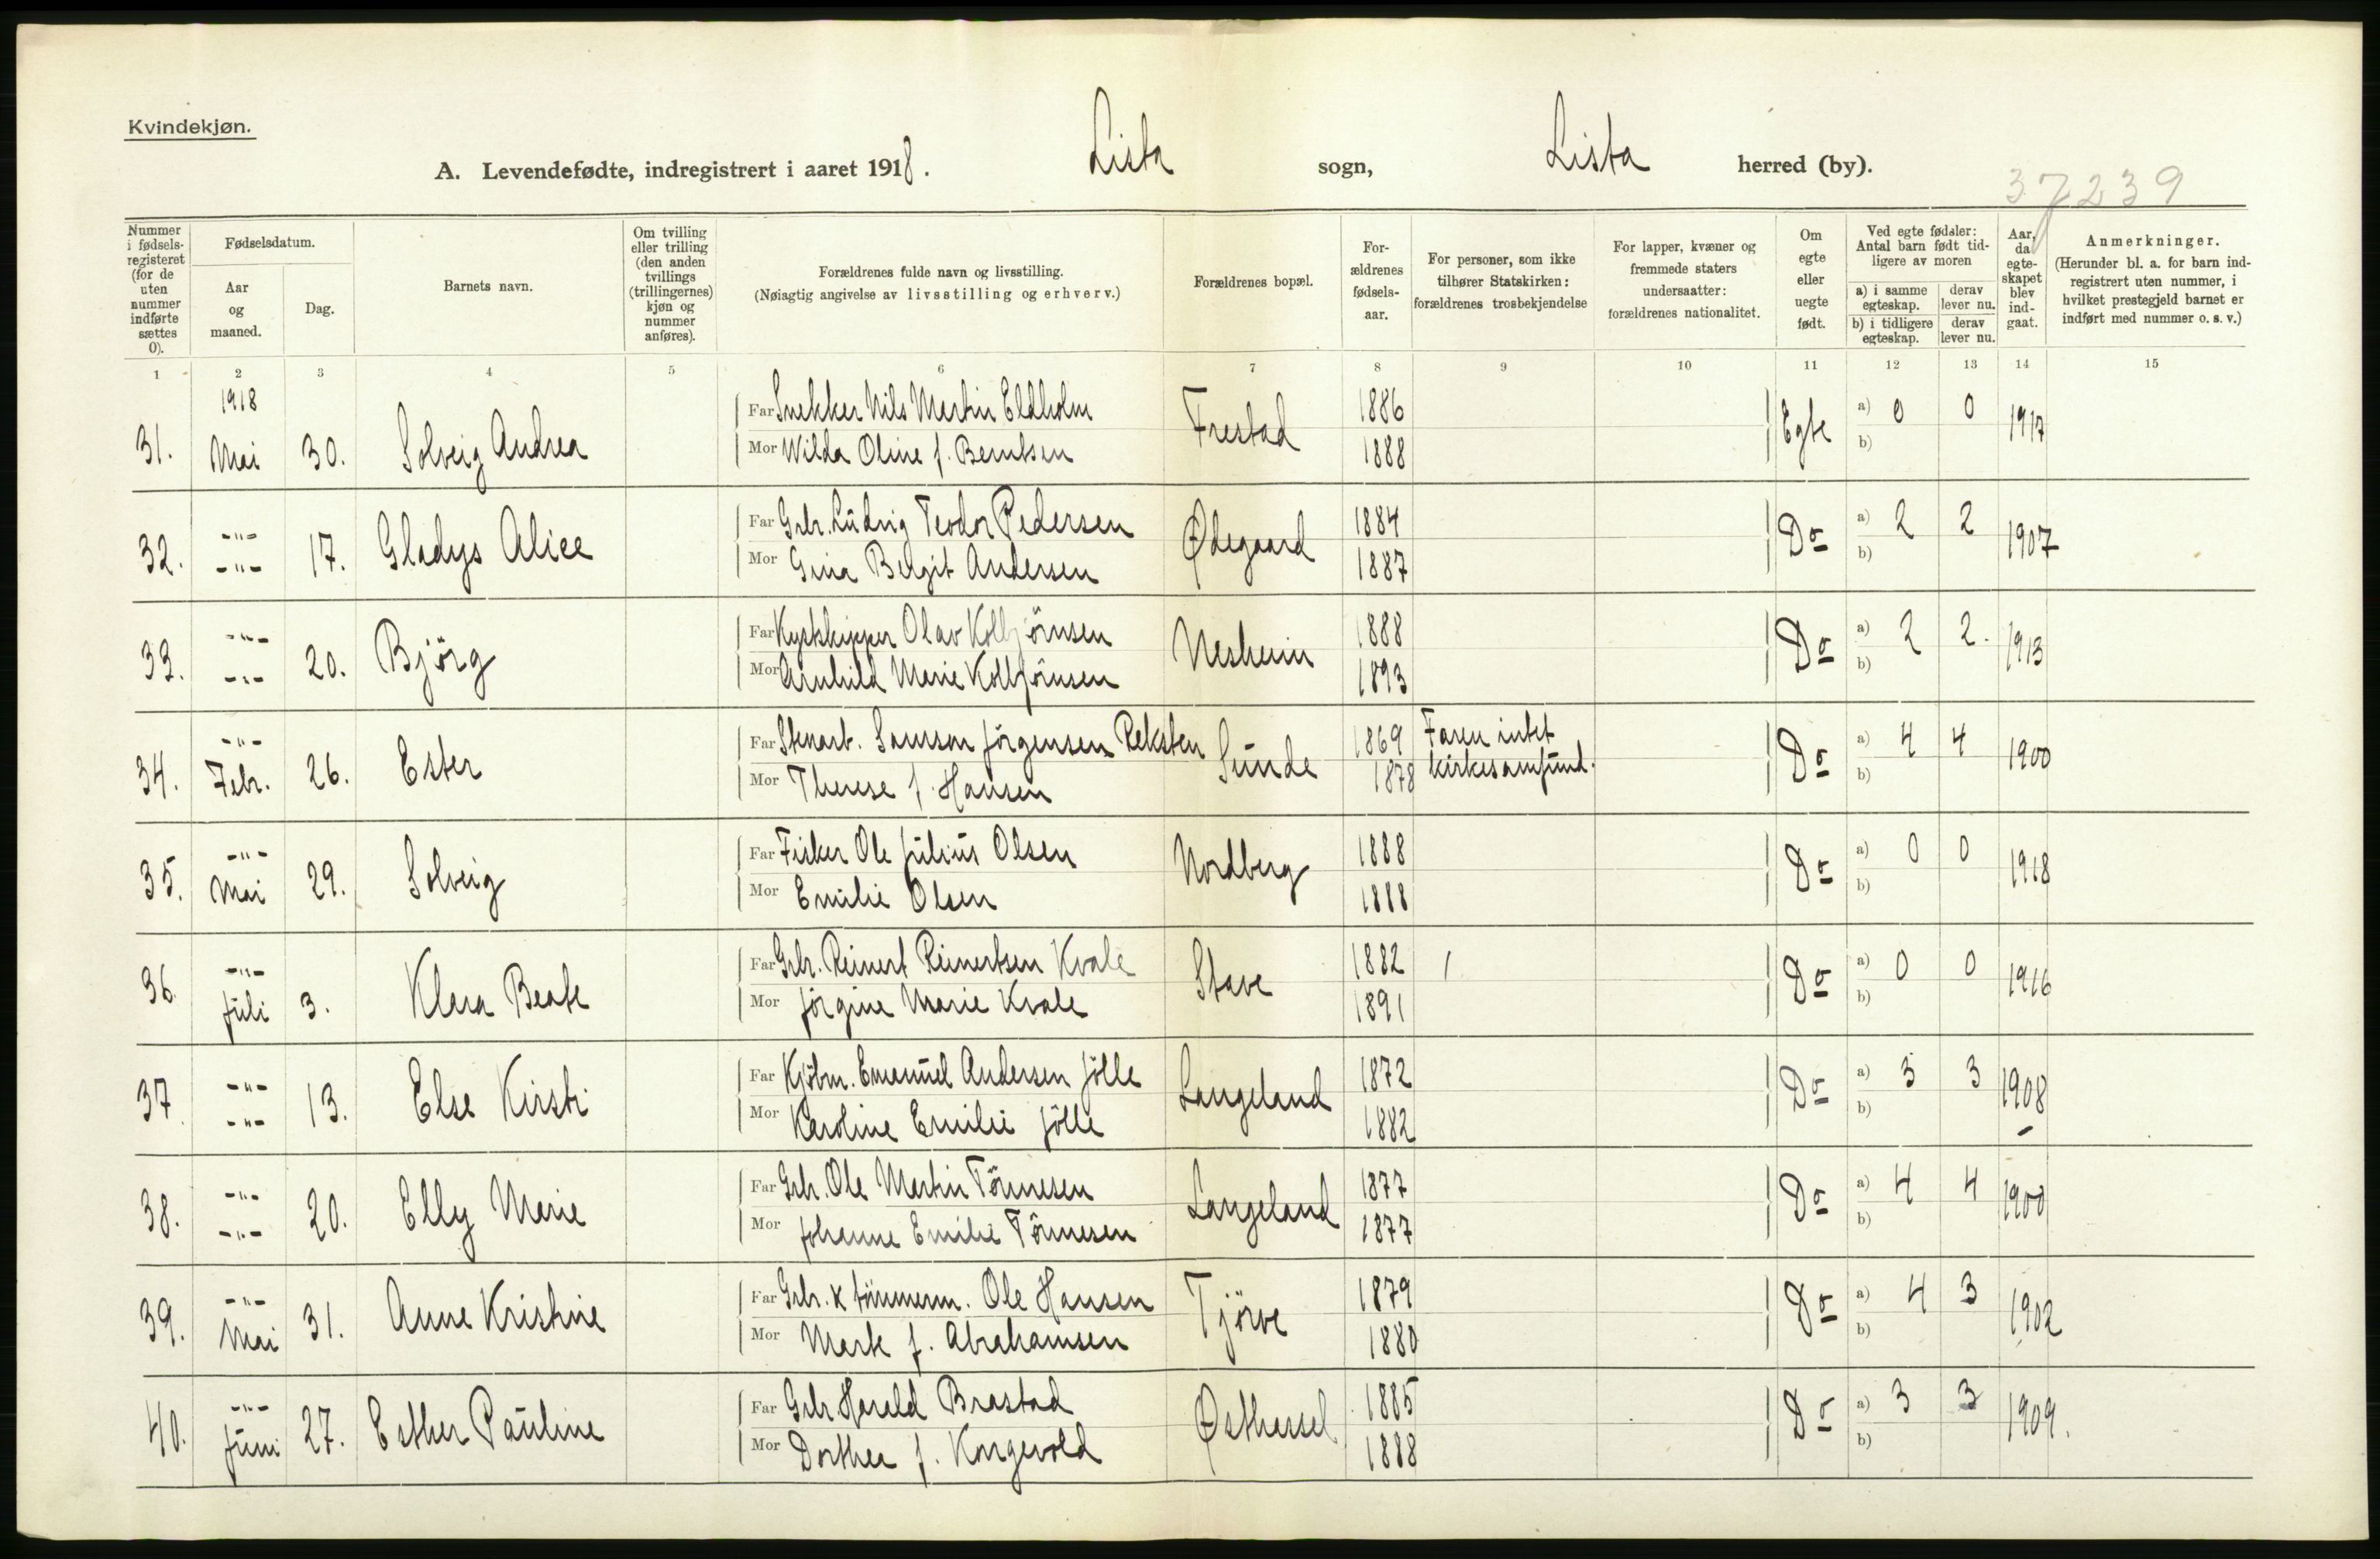 Kvindekjøn.
A. Levendefødte, indregistrert i aaret 1918. Lista sogn, Lista herred (by).
37239
Nummer i fødsels-registeret (for de uten nummer indførte sættes 0).
Fødselsdatum.
Aar og maaned.
Dag.
Barnets navn.
Om tvilling eller trilling (den anden tvillings (trillingernes) kjøn og nummer anføres).
Forældrenes fulde navn og livsstilling.
(Nøiagtig angivelse av livsstilling og erhverv.)
Forældrenes bopæl.
For-ældrenes fødsels-aar.
For personer, som ikke tilhører Statskirken: forældrenes trosbekjendelse
For lapper, kvæner og fremmede staters undersaatter: forældrenes nationalitet.
Om egte eller uegte født.
Ved egte fødsler: Antal barn født tid-ligere av moren
a) i samme egteskap.
derav lever nu.
b) i tidligere egteskap.
derav lever nu.
Aar, da egte-skapet blev ind-gaat.
Anmerkninger.
(Herunder bl. a. for barn ind-registrert uten nummer, i hvilket prestegjeld barnet er indført med nummer o. s. v.)
1 2 3 4 5 6 7 8 9 10 11 12 13 14 15
1918
Far Snekker Nils Martin Eldholm 1886 a) 0 0
31. Mai 30. Solveig Andrea Frestad Egte 1917
Mor Wilda Oline f. Berntsen 1888 b)
-"- Far Gbr. Ludvig Teodor Pedersen 1884 a) 2 2
32. -"- 17. Gladys Alice Ødegaard Do 1907
Mor Gina Bergit Andersen 1887 b)
-"- Far Kystskipper Olav Kolbjörnsen 1888 a) 2 2.
33. -"- 20. Björg Nesheim Do 1913
Mor Arnhild Marie Kolbjörnsen 1893 b)
-"- Far Stenarb. Samson Jörgensen Reksten 1869 Faren intet a) 4 4
34. Febr. 26. Ester Sunde Do 1900
Mor Therese f. Hansen 1878 kirkesamfund. b)
-"- Far Fisker Ole Julius Olsen 1888 a) 0 0
35. Mai 29. Solveig Nordberg Do 1918
Mor Emilie Olsen 1888 b)
-"- Far Gbr. Reinert Reinertsen Kvale 1882 a) 0 0
36. Juli 3. Klara Beate Stave Do 1916
Mor Jörgine Marie Kvale 1891 b)
-"- Far Kjöbm. Emanuel Andersen Jölle 1872 a) 3 3
37 -"- 13. Else Kirsti Langeland Do 1908
Mor Karoline Emilie Jölle 1882 b)
-"- Far Gbr. Ole Martin Tönnesen 1877 a) 4 4
38. -"- 20. Elly Marie Langeland Do 1900
Mor Johanne Emilie Tönnesen 1877 b)
-"- Far Gbr. & tömmerm. Ole Hansen 1879 a) 4 3
39. Mai 31. Anne Kristine Tjörve Do 1902
Mor Marte f. Abrahamsen 1880 b)
-"- Far Gbr Harald Brastad 1885 a) 3 3
40. Juni 27. Esther Pauline Østhassel Do 1909.
Mor Dorthea f. Kongevold 1888 b)